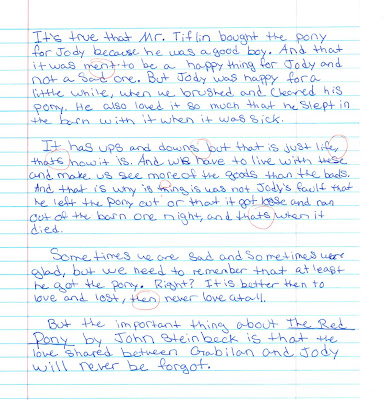 It's true that Mr. Tiflin bought the pony
for Jody because he was a good boy. And that
it was ment to be a happy thing for Jody and
not a Sad one. But Jody was happy for a
little while, when we brushed and Cleared his
pony. He also loved it so much that he slept in
the barn with it when it was sick.
It has ups and downs but that is just life,
thats how it is. And we have to live with these
and make us see more of the goods than the bads.
And that is why is thing is was not Jody's fault that
he left the pony out or that it got lose and ran
out of the barn one night, and thats when it
died.
Sometimes we are sad and Sometimes were
glad, but we need to remember that at least
he got the pony. Right? It is better then to
love and lost, then never love atall.
But the important thing about The Red
Pony by John Steinbeck is that the
love shared between Gabilan and Jody
will never be forgot.